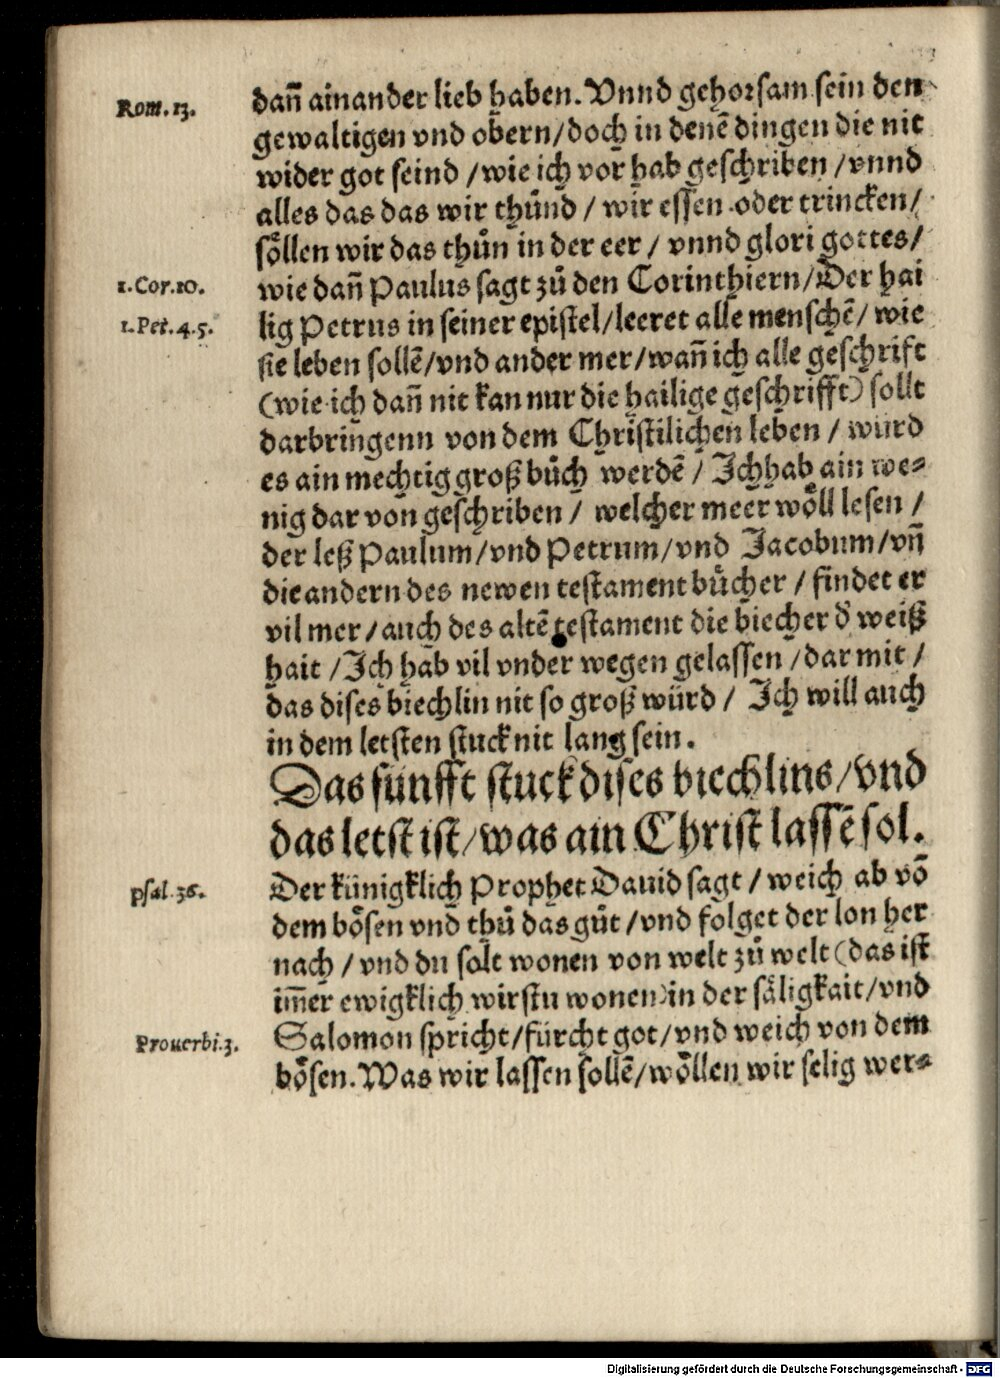 Rom. 13.
dañ ainander lieb haben. Vnnd gehorsam sein den
gewaltigen vnd obern/doch in denē dingen die nit
wider got seind /wie ich vor hab geschriben /vnnd
alles das das wir thůnd / wir essen oder trincken/
söllen wir das thůn in der eer / vnnd glori gottes/
1. Cor. 10.
wie dañ Paulus sagt zů den Corinthiern/Der hai
1. Pet. 4. 5.
lig Petrus in seiner epistel/leeret alle menschē/ wie
sie leben sollē/vnd ander mer/wañ ich alle geschrift
(wie ich dañ nit kan nur die hailige geschrifft) sollt
darbringenn von dem Christilichen leben / wurd
es ain mechtig groß bůch werdē / Ich hab ain we⸗
nig dar von geschriben / welcher meer wöll lesen /
der leß Paulum/vnd Petrum/vnd Jacobum/vñ
die andern des newen testament bücher / findet er
vil mer/auch des altē testament die biecher d̕ weiß
hait /Ich hab vil vnder wegen gelassen /dar mit /
das dises biechlin nit so groß würd / Ich will auch
in dem letsten stuck nit lang sein.
Das fünfft stuck dises biechlins/vnd
das letst ist/was ain Christ lassē sol.
psal. 36.
Der künigklich Prophet Dauid sagt / weich ab vō
dem bösen vnd thů das gůt /vnd folget der lon her
nach / vnd du solt wonen von welt zů welt (das ist
im̄er ewigklich wirstu wonen) in der säligkait/vnd
Prouerbi. 3.
Salomon spricht/fürcht got/vnd weich von dem
bösen. Was wir lassen sollē/wöllen wir selig wer⸗
Digitalisierung gefördert durch die Deutsche Forschungsgemeinschaft - DFG